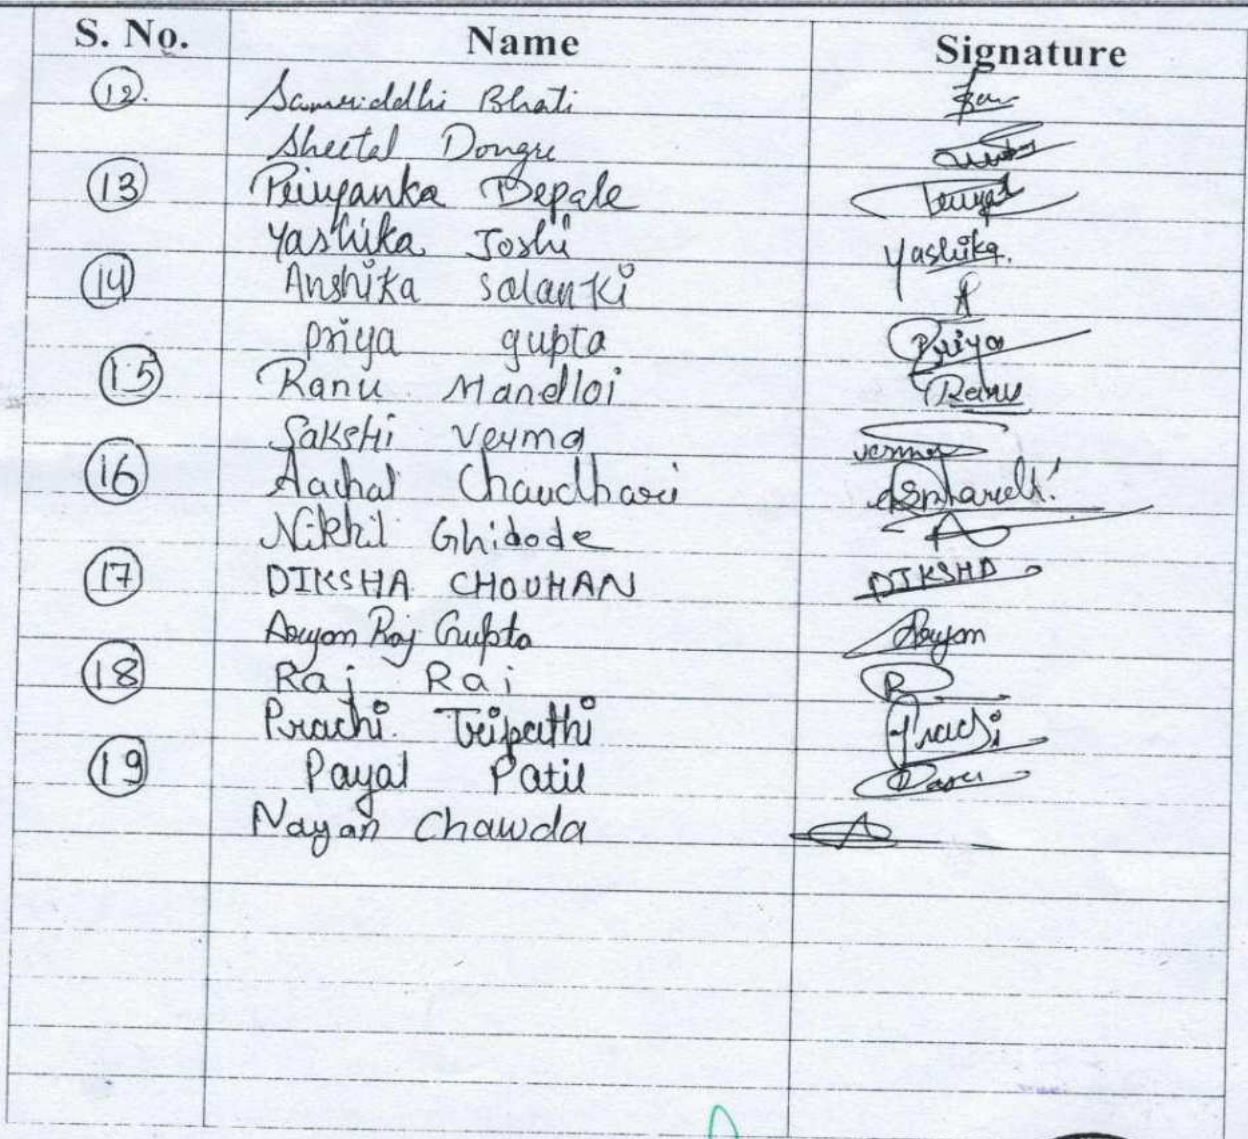 S. No. Name Signature
12. Samriddhi Bhati
Sheetal Dongre
13 Priyanka Depale
Yashika Joshi Yashika.
14 Anshika Solanki A
Priya gupta Priya
15 Ranu Mandloi Ranu
Sakshi Verma verma
16 Aachal Chaudhari
Nikhil Ghidode
17 DIKSHA CHOUHAN DIKSHA
Aryan Raj Gupta Aryan
18 Raj Rai R
Prachi Tripathi Prachi
19 Payal Patil
Nayan Chawda